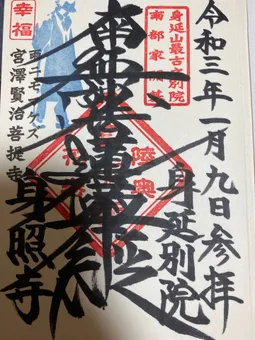 令和三年一月九日参拝
身延山最古別院
南部家
身延別院
南無妙法蓮華経
陸奥
幸福
雨ニモマケズ
宮澤賢治菩提寺
身照寺